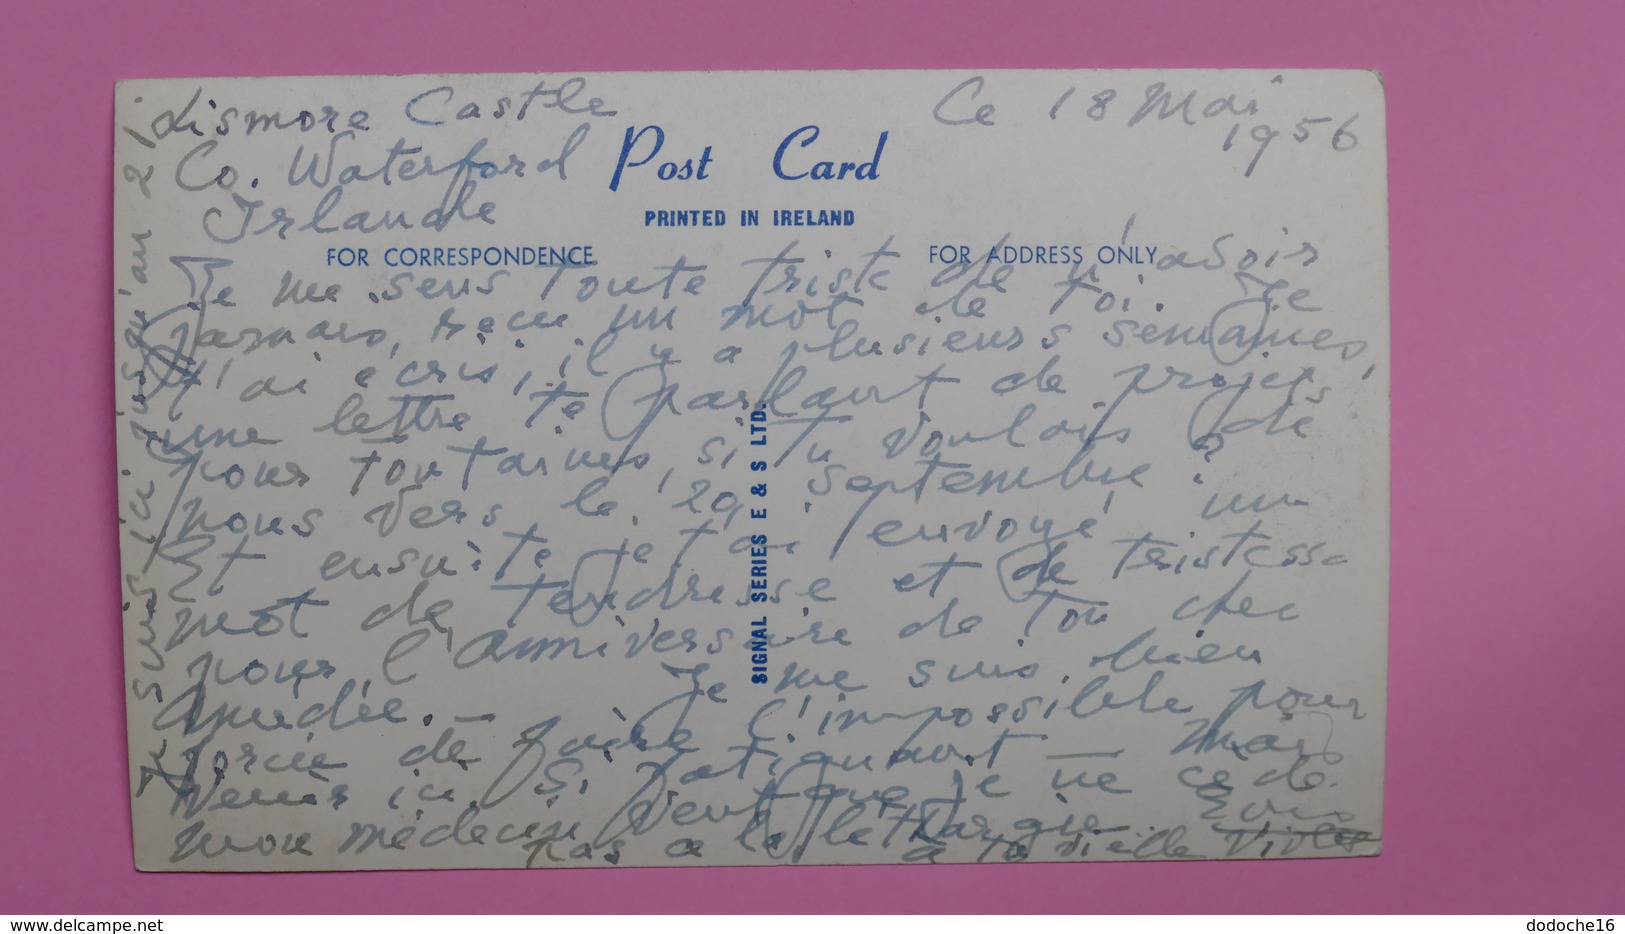 Lismore Castle
Co. Waterford
Irlande
Ce 18 Mai
1956
Post Card
PRINTED IN IRELAND
FOR CORRESPONDENCE
FOR ADDRESS ONLY
Je me sens toute triste de n'avoir
jamais reçu un mot de toi. Je
t'ai écris, il y a plusieurs semaines,
une lettre te parlant de projets
pour tout si tu voulais de
nous vers le 20 Septembre?
Et ensuite je t'ai envoyé un
mot de tendresse et de tristesse
pour l'anniversaire de ton cher
Amédée. — Je me suis bien
forcée de faire l'impossible pour
venir ici. Si fatiguant — Mais
mon médecin veut que je ne cède
pas à la léthargie.
à ta vieille Violet
Je suis ici jusqu'au 21
SIGNAL SERIES E & S LTD.
delcampe.net
dodoche16